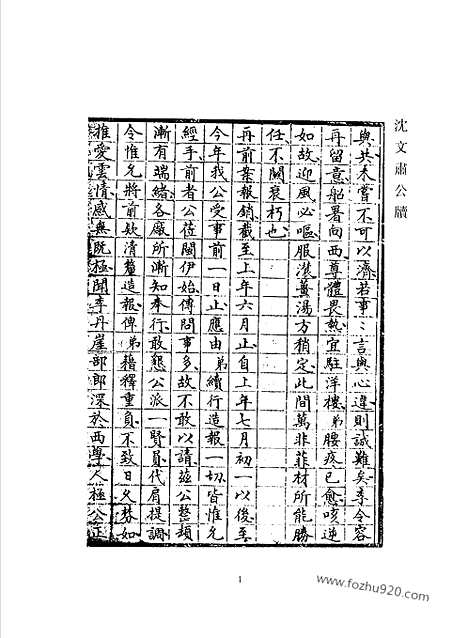 沈文肅公牘
與共未嘗不可以濟若事事言與心違則誠難矣系令容
再留意船署向西尊體畏熱宜駐洋樓弟腰疼已愈咳逆
如故迎風必嘔服濃薑湯方稍定此間萬非菲材所能勝
任不關衰朽也
再前案報銷截至上年六月止自上年七月初一以後至
今年我公受事前一日止應由弟續行造報一切皆惟允
經手前者公蒞閩伊始傳問事多故不敢以請茲公整頓
漸有端緒各廠所漸知奉行敢懇公派一賢員代肩提調
令惟允將前欵清釐造報俾弟藉釋重負不致日久棼如
推愛雲情感無既極聞李丹崖部郎深於西學人極公正
1
www.fozhu920.com